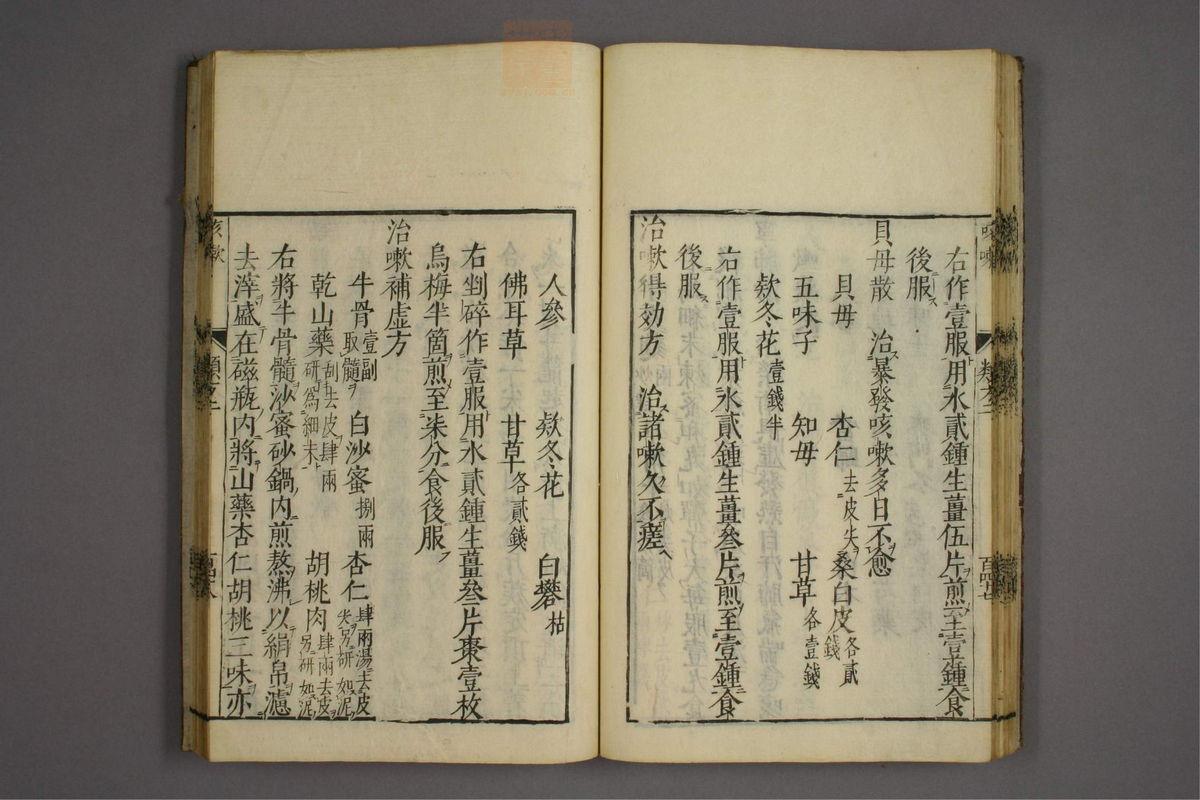 咳嗽
右作壹服用水貳鍾生薑伍片煎至壹鍾食
後服
貝母散 治暴發咳嗽多日不愈
貝母 杏仁去皮尖 桑白皮各貳錢
五味子 知母 甘草各壹錢
欵冬花壹錢半
右作壹服用水貳鍾生薑叄片煎至壹鍾食
後服
治嗽得効方 治諸嗽久不瘥
人參 欵冬花 白礬枯
佛耳草 甘草各貳錢
右剉碎作壹服用水貳鍾生薑叄片棗壹枚
烏梅半箇煎至柒分食後服
治嗽補虛方
牛骨壹副取髓 白沙蜜捌兩 杏仁肆兩湯去皮尖另研如泥
乾山藥刮去皮肆兩研爲細末 胡桃肉肆兩去皮另研如泥
右將牛骨髓沙蜜砂鍋內煎熬沸以絹帛濾
去滓盛在磁瓶內將山藥杏仁胡桃三味亦
咳嗽